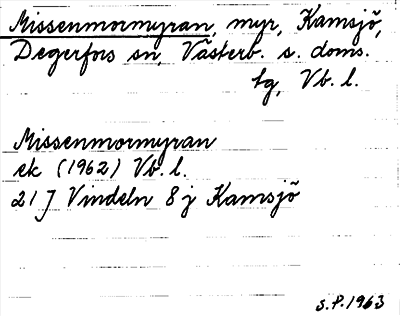 Missenmormyran, myr, Kamsjö,
Degerfors sn, Västerb. s. doms.
tg, Vb. l.
Missenmormyran
ek (1962) Vb. l.
21 J Vindeln 8 j Kamsjö
S.P. 1963